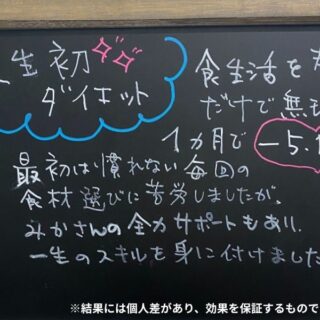 生初
ダイエット
食生活を
だけで無
1カ月で -5.
最初は慣れない毎回の
食材選びに苦労しましたが、
みかさんの全力サポートもあり、
一生のスキルを身に付けました
※結果には個人差があり、効果を保証するもので